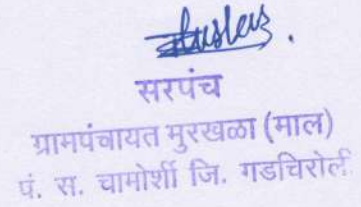 सरपंच
ग्रामपंचायत मुरखळा (माल)
पं. स. चामोर्शी जि. गडचिरोली